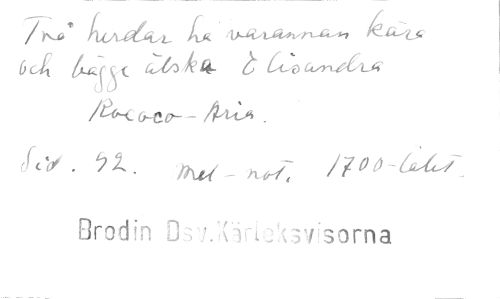 Två herdar ha varannan kära
och bägge älska Elisandra
Rococo-Aria.
Sid. 92. mel-not. 1700-talet.
Brodin Dsv.Kärleksvisorna